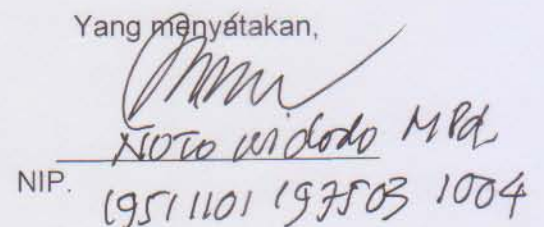 Yang menyatakan,
Noto widodo MPd
NIP. 19511101 197503 1004